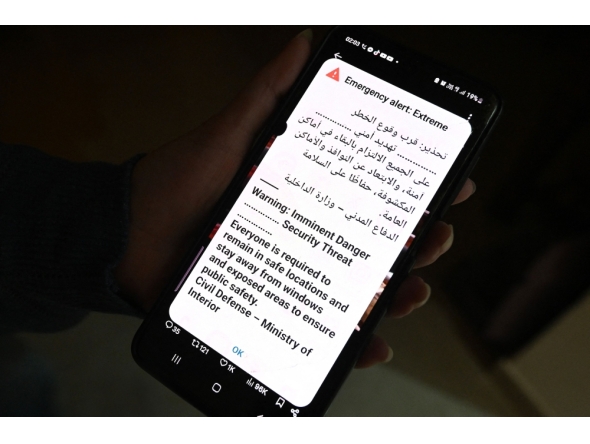 02:03
19%
Emergency alert: Extreme
تحذير: قرب وقوع الخطر
.............. تهديد أمني ..............
على الجميع الالتزام بالبقاء في أماكن
آمنة، والابتعاد عن النوافذ والأماكن
المكشوفة، حفاظًا على السلامة
العامة.
الدفاع المدني – وزارة الداخلية
Warning: Imminent Danger
.............. Security Threat
..............
Everyone is required to
remain in safe locations and
stay away from windows
and exposed areas to ensure
public safety.
Civil Defense – Ministry of
Interior
OK
35 121 1K 96K